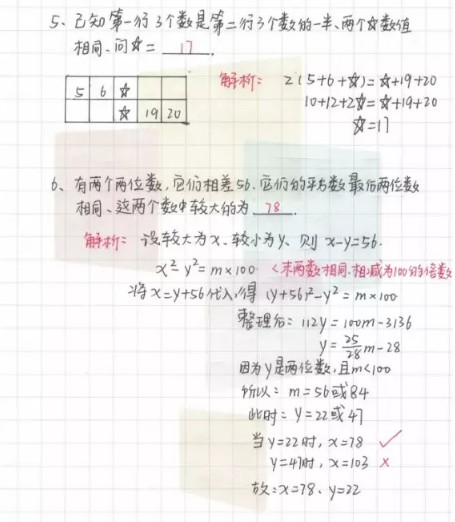 5、已知第一行3个数是第二行3个数的一半、两个☆数值
相同、问☆= 17 .
5 6 ☆
☆ 19 20
解析: 2(5+6+☆)=☆+19+20
10+12+2☆=☆+19+20
☆=17
6、有两个两位数,它们相差56.它们的平方数最后两位数
相同、这两个数中较大的为 78 .
解析: 设较大为x、较小为y、则 x-y=56.
x²-y²=m×100 <末两数相同.相减为100的倍数
将x=y+56代入,得 (y+56)²-y²=m×100
整理后: 112y=100m-3136
y=25/28m-28
因为y是两位数,且m<100
所以: m=56或84
此时: y=22或47
当y=22时, x=78 ✓
y=47时, x=103 ×
故:x=78、y=22